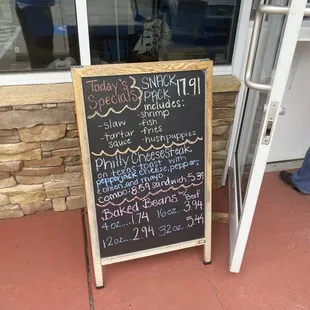 Today's
Specials
SNACK
PACK 17.91
includes:
- slaw
- tartar
sauce
- shrimp
- fish
- fries
- hushpuppies
Philly Cheesesteak
on texas toast with
pepperjack cheese, peppers
onion, and mayo
combo: 8.59 sandwich 5.39
Baked Beans w/ Beef
4oz... 1.74 16oz... 3.94
12oz... 2.94 32oz... 5.44